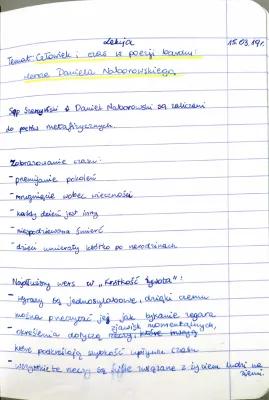 Lekcja 15.03.19r.
Temat: Człowiek i czas w poezji baroku:
Daniela Naborowskiego.
Sęp Szarzyński i Daniel Naborowski są zaliczani
do poetów metafizycznych.
Zobrazowanie czasu:
- przemijanie pokoleń
- mrugnięcie wobec wieczności
- każdy dzień jest inny
- niespodziewana śmierć
- dzieci umierały krótko po narodzinach
Najdłuższy wers w „Krótkość żywota":
- wyrazy są jednosylabowe, dzięki czemu
można przeczytać jej jak tykanie zegara
- określenia dotyczą zjawisk momentalnych,
które podkreślają szybkość upływu czasu
- wszystkie rzeczy są związane z życiem ludzi na
ziemi.